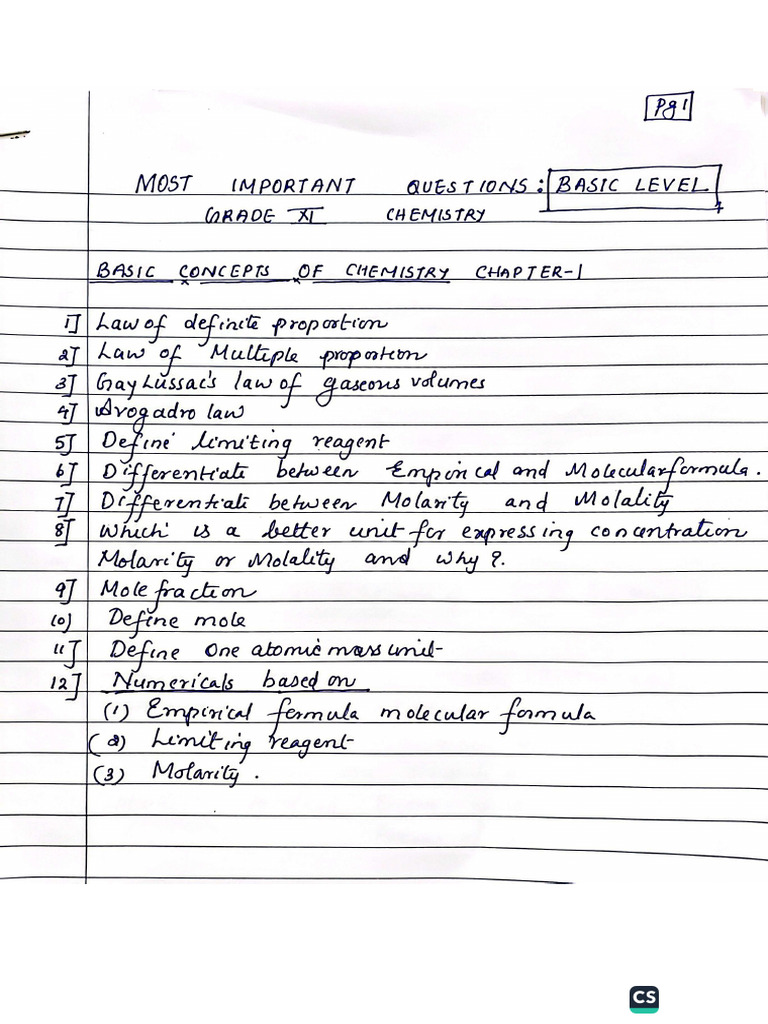 Pg 1
MOST IMPORTANT QUESTIONS: BASIC LEVEL
GRADE XI CHEMISTRY
BASIC CONCEPTS OF CHEMISTRY CHAPTER-1
1] Law of definite proportion
2] Law of Multiple proportion
3] Gay Lussac's law of gaseous volumes
4] Avogadro law
5] Define limiting reagent
6] Differentiate between Empirical and Molecular formula.
7] Differentiate between Molarity and Molality
8] Which is a better unit for expressing concentration
Molarity or Molality and why?.
9] Mole fraction
10) Define mole
11] Define One atomic mass unit
12] Numericals based on
(1) Empirical formula molecular formula
(2) Limiting reagent
(3) Molarity.
CS